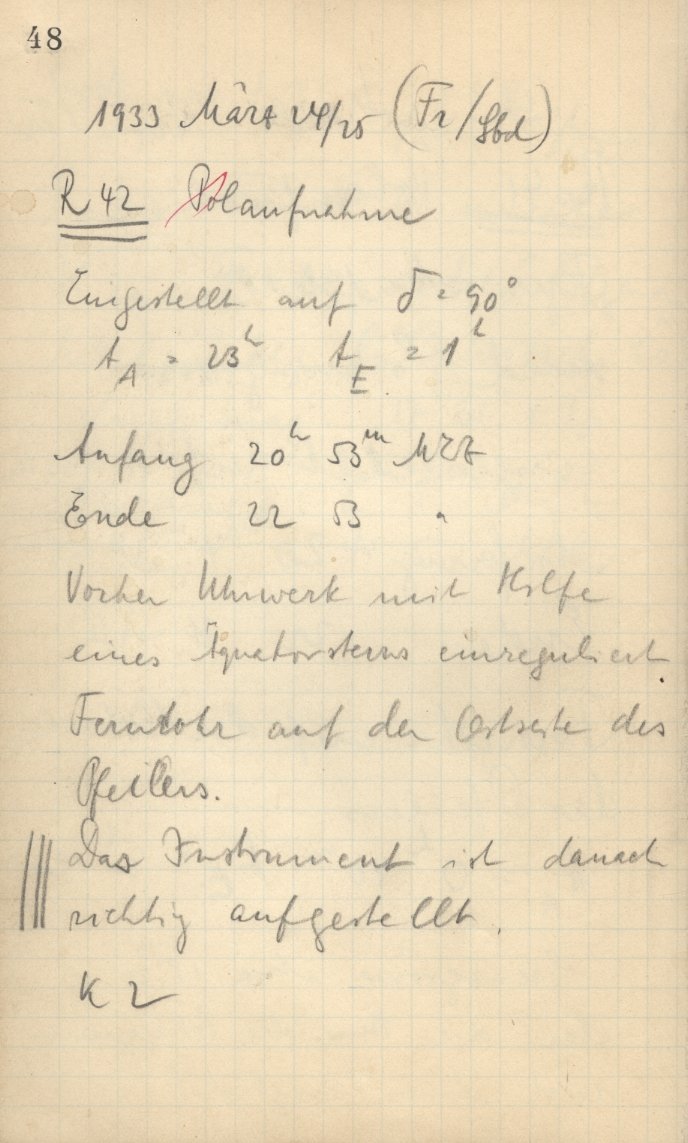 48
1933 März 24/25 (Fr/Sbd)
R 42 Polaufnahme
Eingestellt auf δ = 90°
t_A = 23^h t_E = 1^h
Anfang 20^h 53^m MEZ
Ende 22 53 "
Vorher Uhrwerk mit Hilfe
eines Äquatorsterns einreguliert.
Fernrohr auf der Ostseite des
Pfeilers.
Das Instrument ist danach
richtig aufgestellt.
K 2